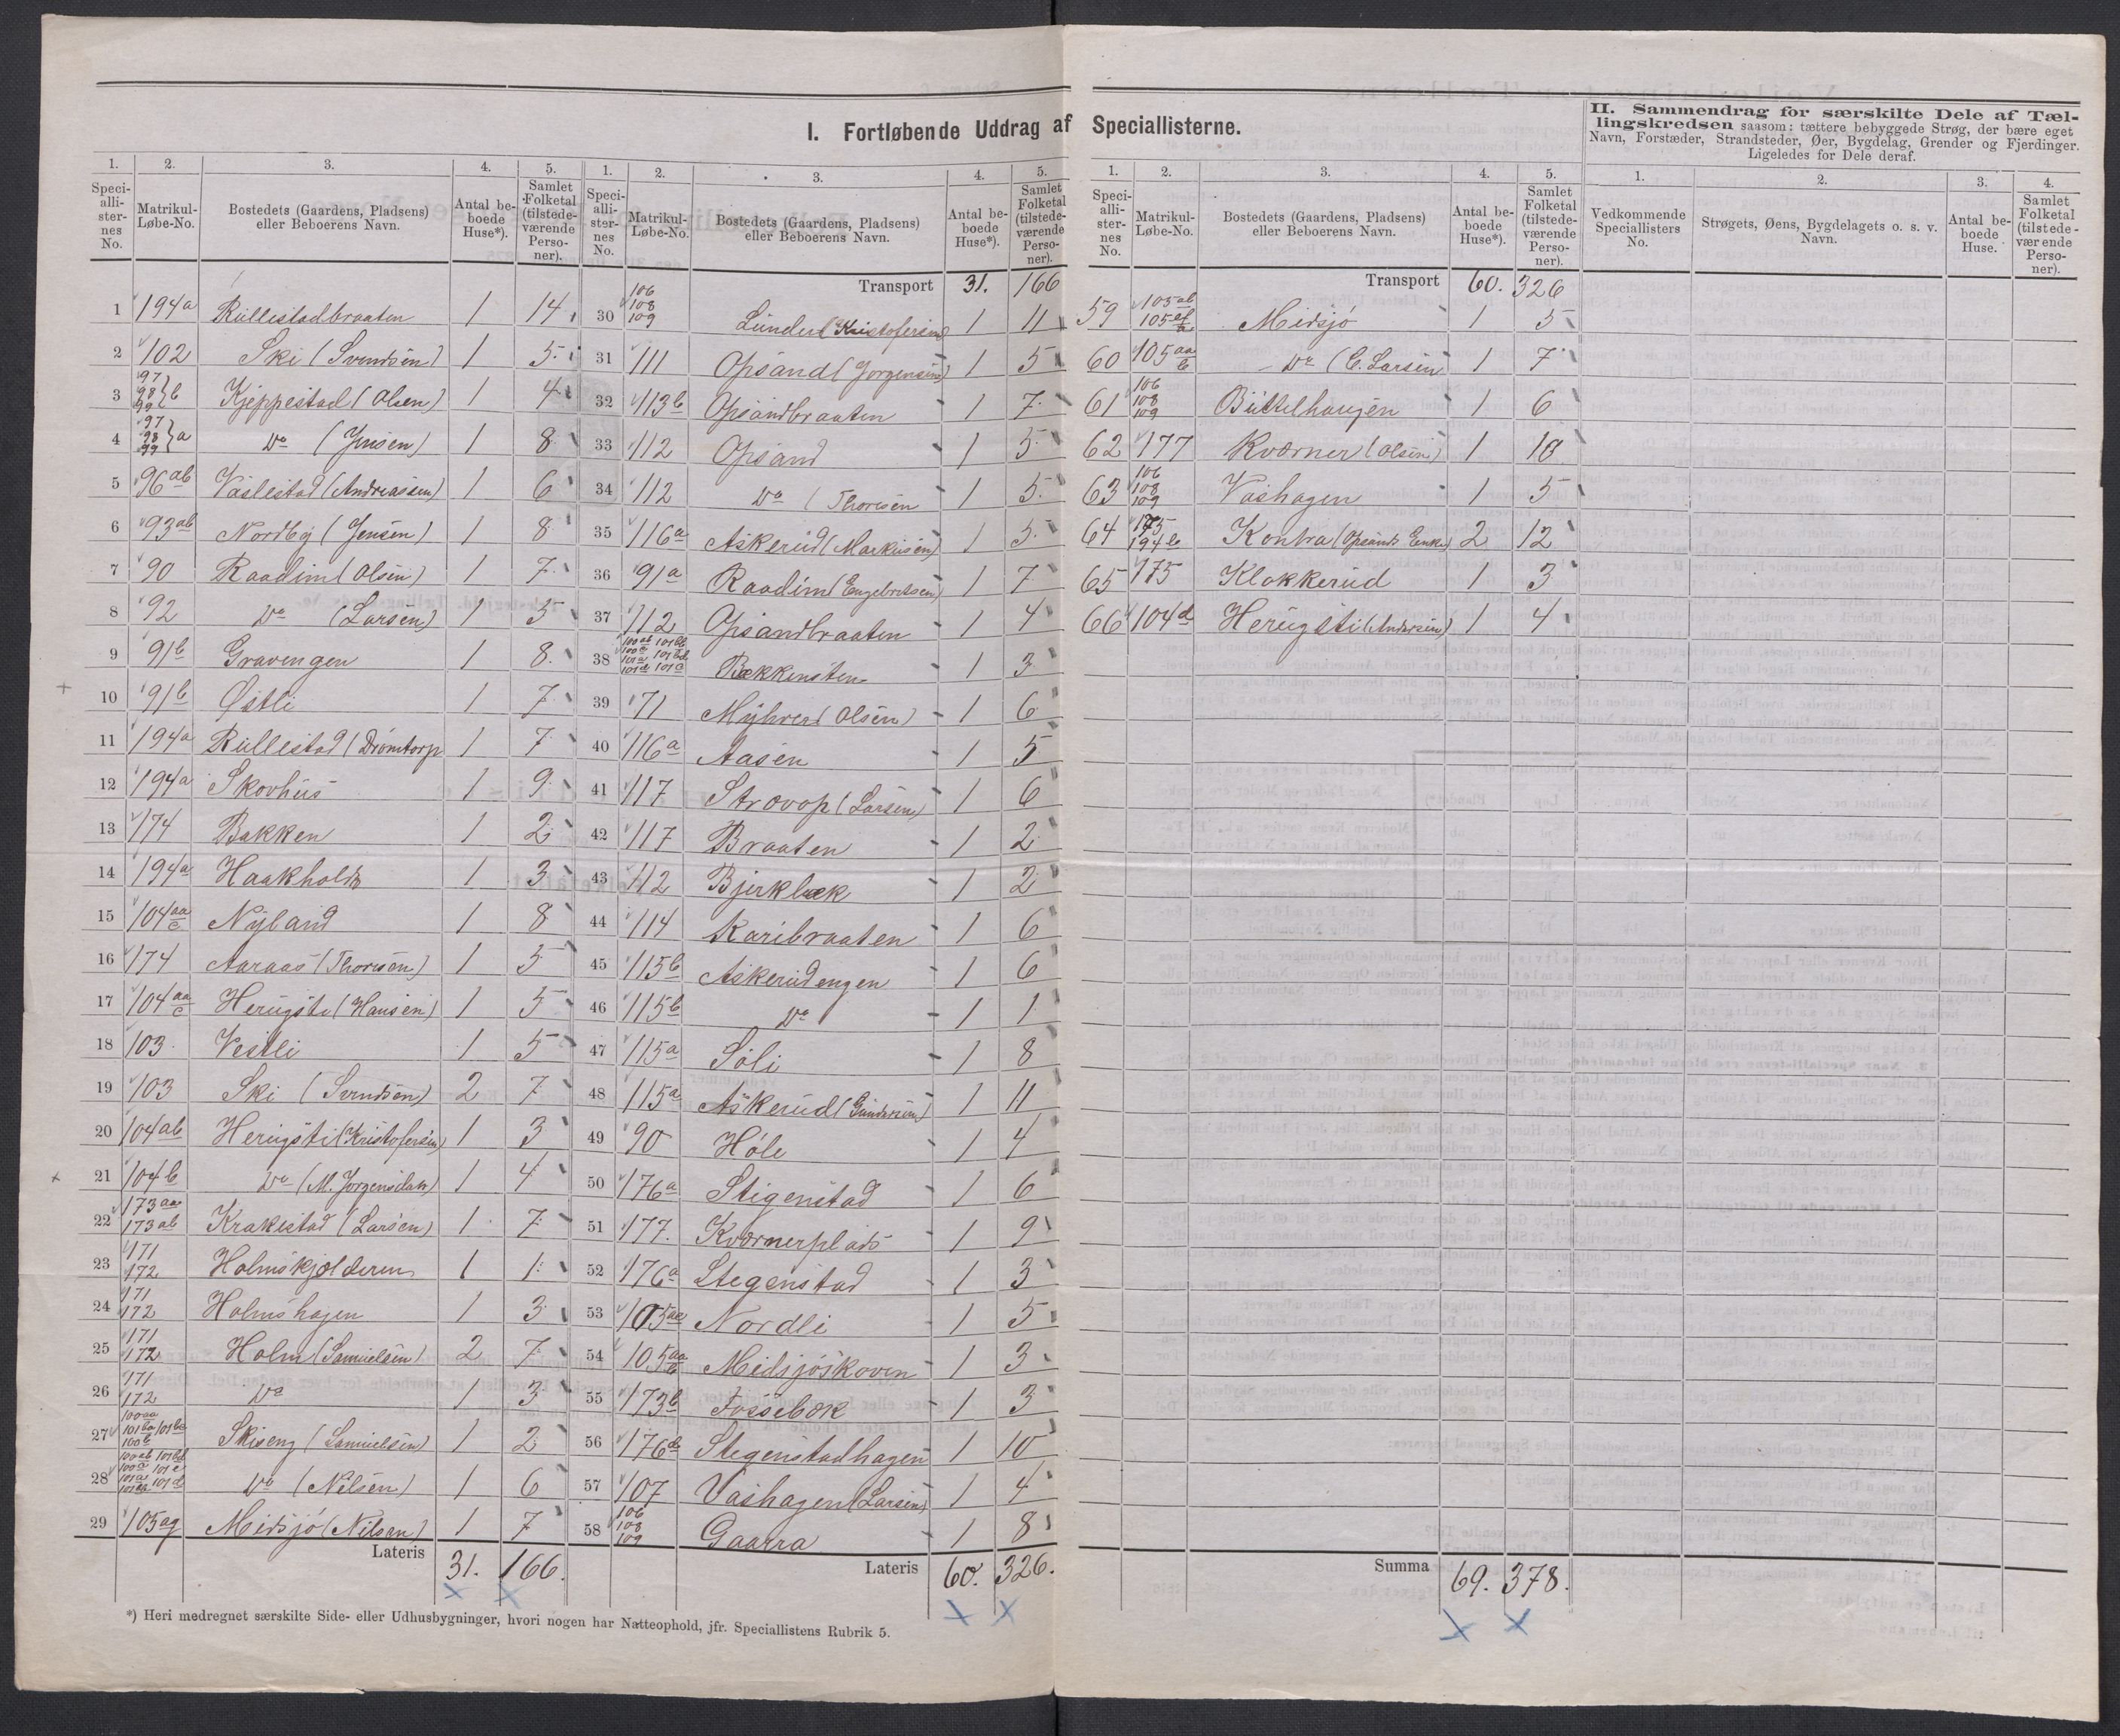 I. Fortløbende Uddrag af Speciallisterne.
II. Sammendrag for særskilte Dele af Tællingskredsen saasom: tættere bebyggede Strøg, der bære eget
Navn, Forstæder, Strandsteder, Øer, Bygdelag, Grender og Fjerdinger.
Ligeledes for Dele deraf.
1. 2. 3. 4. 5.
Speciallisternes No. Matrikul-Løbe-No. Bostedets (Gaardens, Pladsens) eller Beboerens Navn. Antal beboede Huse*). Samlet Folketal (tilstedeværende Personer).
1 194a Rullestadbraaten 1 14
2 102 Ski (Svendsen) 1 5
3 97 98 99 b Kjeppestad (Olsen) 1 4
4 97 98 99 a Do (Jensen) 1 8
5 96ab Vaslestad (Andreassen) 1 6
6 93ab Nordby (Jensen) 1 8
7 90 Raadim (Olsen) 1 7
8 92 Do (Larsen) 1 5
9 91b Gravengen 1 8
10 91b Østli 1 7
11 194a Rullestad (Drömtorp 1 7
12 194a Skovhus 1 9
13 174 Bakken 1 2
14 194a Haakholdt 1 3
15 104aa c Nyland 1 8
16 174 Aaraas (Thoresen) 1 5
17 104aa c Herugsti (Hansen) 1 5
18 103 Vestli 1 5
19 103 Ski (Svendsen) 2 7
20 104ab Herugsti (Kristofersen) 1 3
21 104b Do (M. Jorgensdatt) 1 4
22 173aa 173ab Krakestad (Larsen) 1 7
23 171 172 Holmskjolderen 1 1
24 171 172 Holmshagen 1 3
25 171 172 Holm (Samuelsen) 2 7
26 171 172 Do 1 3
27 Skiseng (Samuelsen) 1 2
28 Do (Nilsen) 1 6
29 105ag Midsjö (Nilsen) 1 7
Lateris 31. 166.
1. 2. 3. 4. 5.
Speciallisternes No. Matrikul-Løbe-No. Bostedets (Gaardens, Pladsens) eller Beboerens Navn. Antal beboede Huse*). Samlet Folketal (tilstedeværende Personer).
Transport 31. 166
30 106 108 109 Lunder (Kristofersen) 1 11
31 111 Opsand (Jorgensen) 1 5
32 113b Opsandbraaten 1 7
33 112 Opsand 1 5
34 112 Do (Thoresen 1 5
35 116a Askerud (Markusen) 1 5
36 91a Raadim (Engebretsen) 1 7
37 112 Opsandbraaten 1 4
38 Bekkensten 1 3
39 71 Myhrer (Olsen) 1 6
40 116a Aasen 1 5
41 117 Strovop (Larsen) 1 6
42 117 Braaten 1 2
43 112 Bjerkbæk 1 2
44 114 Karibraaten 1 6
45 115b Askerudengen 1 6
46 115b Do 1 1
47 115a Söli 1 8
48 115a Askerud (Gundersen) 1 11
49 90 Höle 1 4
50 176a Stigenstad 1 6
51 177. Kværnerplads 1 9
52 176a Stegenstad 1 3
53 Nordli 1 5
54 105aa b Midsjöskoven 1 3
55 173b Fossebæk 1 3
56 Stegenstadhagen 1 10
57 107 Vashagen (Larsen) 1 4
58 106 108 109 Gaarra 1 8
Lateris 60. 326.
1. 2. 3. 4. 5.
Speciallisternes No. Matrikul-Løbe-No. Bostedets (Gaardens, Pladsens) eller Beboerens Navn. Antal beboede Huse*). Samlet Folketal (tilstedeværende Personer).
Transport 60. 326
59 Midsjö 1 5
60 105aa b Do (C. Larsen 1 7
61 106 108 109 Büttelhaugen 1 6
62 177 Kværner (Olsen) 1 10
63 106 108 109 Vashagen 1 5
64 175 194b Kontra (Opsands Enke) 2 12
65 175 Klokkerud 1 3
66 104d Herugsti (Andersen) 1 4
Summa 69. 378.
1. 2. 3. 4.
Vedkommende Speciallisters No. Strøgets, Øens, Bygdelagets o. s. v. Navn. Antal beboede Huse. Samlet Folketal (tilstedeværende Personer).
*) Heri medregnet særskilte Side- eller Udhusbygninger, hvori nogen har Natteophold, jfr. Speciallistens Rubrik 5.